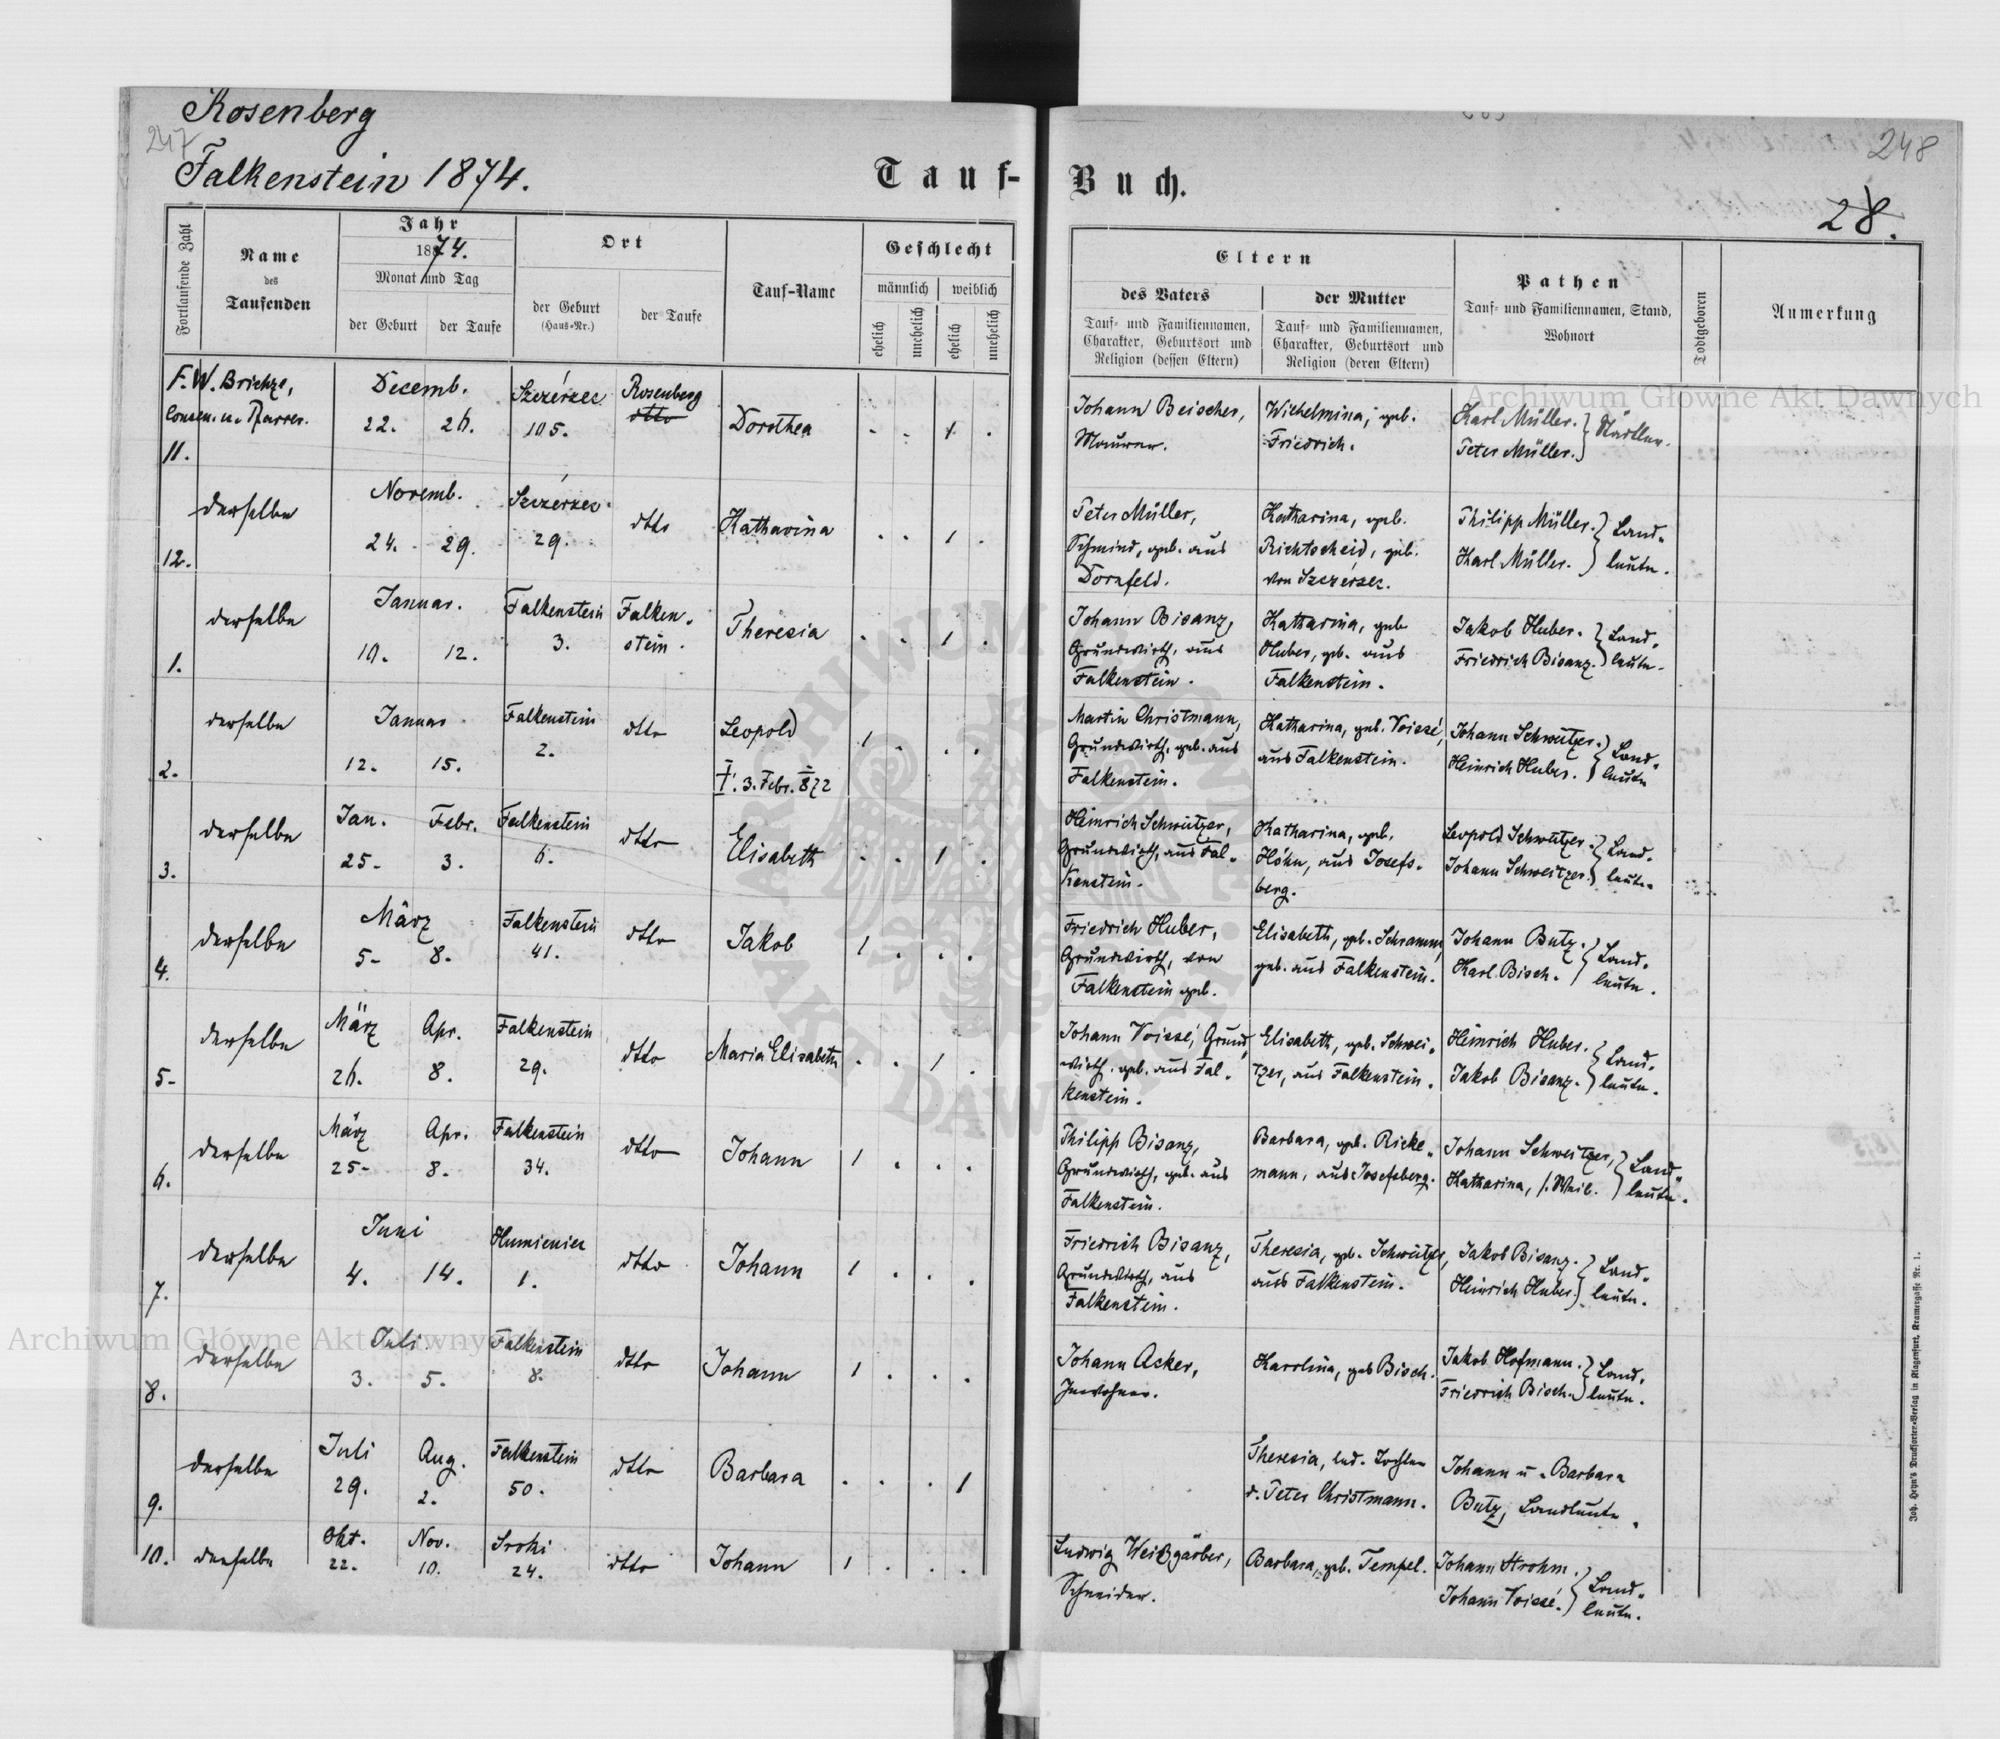 Rosenberg
247
Falkenstein 1874.
Tauf-Buch.
248
28.
Fortlaufende Zahl
Name
des
Taufenden
Jahr
1874.
Monat und Tag
der Geburt
der Taufe
Ort
der Geburt
(Haus-Nr.)
der Taufe
Tauf-Name
Geschlecht
männlich
weiblich
ehelich
unehelich
ehelich
unehelich
Eltern
des Vaters
Tauf- und Familiennamen,
Charakter, Geburtsort und
Religion (dessen Eltern)
der Mutter
Tauf- und Familiennamen,
Charakter, Geburtsort und
Religion (deren Eltern)
Pathen
Tauf- und Familiennamen, Stand,
Wohnort
Todtgeboren
Anmerkung
F. W. Decemb. Szczérzec Rosenberg
22. 26. 105. dtto Dorothea 1
11.
Johann Beischer, Wilhelmina, geb. Karl Müller.
Maurer. Friedrich. Peter Müller.
derselbe Novemb. Szczérzec
12. 24. 29. 29. dtto Katharina 1
Peter Müller, Katharina, geb. Philipp Müller. Land-
Schmied, geb. aus Richtscheid, geb. Karl Müller. leute.
Dornfeld. von Szczérzec.
derselbe Januar. Falkenstein Falken-
1. 10. 12. 3. stein. Theresia 1
Johann Bisanz, Katharina, geb. Jakob Huber. Land-
Grundwirth, aus Huber, geb. aus Friedrich Bisanz. leute.
Falkenstein. Falkenstein.
derselbe Januar Falkenstein dtto Leopold 1
2. 12. 15. 2. 3. Febr. 872
Martin Christmann, Katharina, geb. Voissé, Johann Schweitzer. Land-
Grundwirth, geb. aus aus Falkenstein. Heinrich Huber. leute
Falkenstein.
derselbe Jan. Febr. Falkenstein dtto Elisabeth 1
3. 25. 3. 6.
Heinrich Schweitzer, Katharina, geb. Leopold Schweitzer. Land-
Grundwirth, aus Fal- Höhn, aus Josefs- Johann Schweitzer. leute.
kenstein. berg.
derselbe März Falkenstein dtto Jakob 1
4. 5. 8. 41.
Friedrich Huber, Elisabeth, geb. Schramm, Johann Butz. Land-
Grundwirth, von geb. aus Falkenstein. Karl Bisch. leute.
Falkenstein geb.
derselbe März Apr. Falkenstein dtto Maria Elisabeth 1
5. 26. 8. 29.
Johann Voissé, Grund- Elisabeth, geb. Schwei- Heinrich Huber. Land-
wirth, geb. aus Fal- tzer, aus Falkenstein. Jakob Bisanz. leute.
kenstein.
derselbe März Apr. Falkenstein dtto Johann 1
6. 25. 8. 34.
Philipp Bisanz, Barbara, geb. Ricke- Johann Schweitzer, Land-
Grundwirth, geb. aus mann, aus Josefsberg. Katharina, s. Weib. leute.
Falkenstein.
derselbe Juni Humieniec dtto Johann 1
7. 4. 14. 1.
Friedrich Bisanz, Theresia, geb. Schweitzer, Jakob Bisanz. Land-
Grundwirth, aus aus Falkenstein. Heinrich Huber. leute.
Falkenstein.
derselbe Juli Falkenstein dtto Johann 1
8. 3. 5. 8.
Johann Acker, Karolina, geb Bisch. Jakob Hofmann. Land-
Inwohner. Friedrich Bisch. leute.
derselbe Juli Aug. Falkenstein dtto Barbara 1
9. 29. 2. 50.
Theresia, led. Tochter Johann u. Barbara
d. Peter Christmann. Butz, Landleute.
10. derselbe Okt. Nov. Sroki dtto Johann 1
22. 10. 24.
Ludwig Weißgärber, Barbara, geb. Tempel. Johann Strohm. Land-
Schneider. Johann Voissé. leute.
Joh. Heyn's Drucksorten-Verlag in Klagenfurt, Kramergasse Nr. 1.
Archiwum Główne Akt Dawnych
Archiwum Główne Akt Dawnych